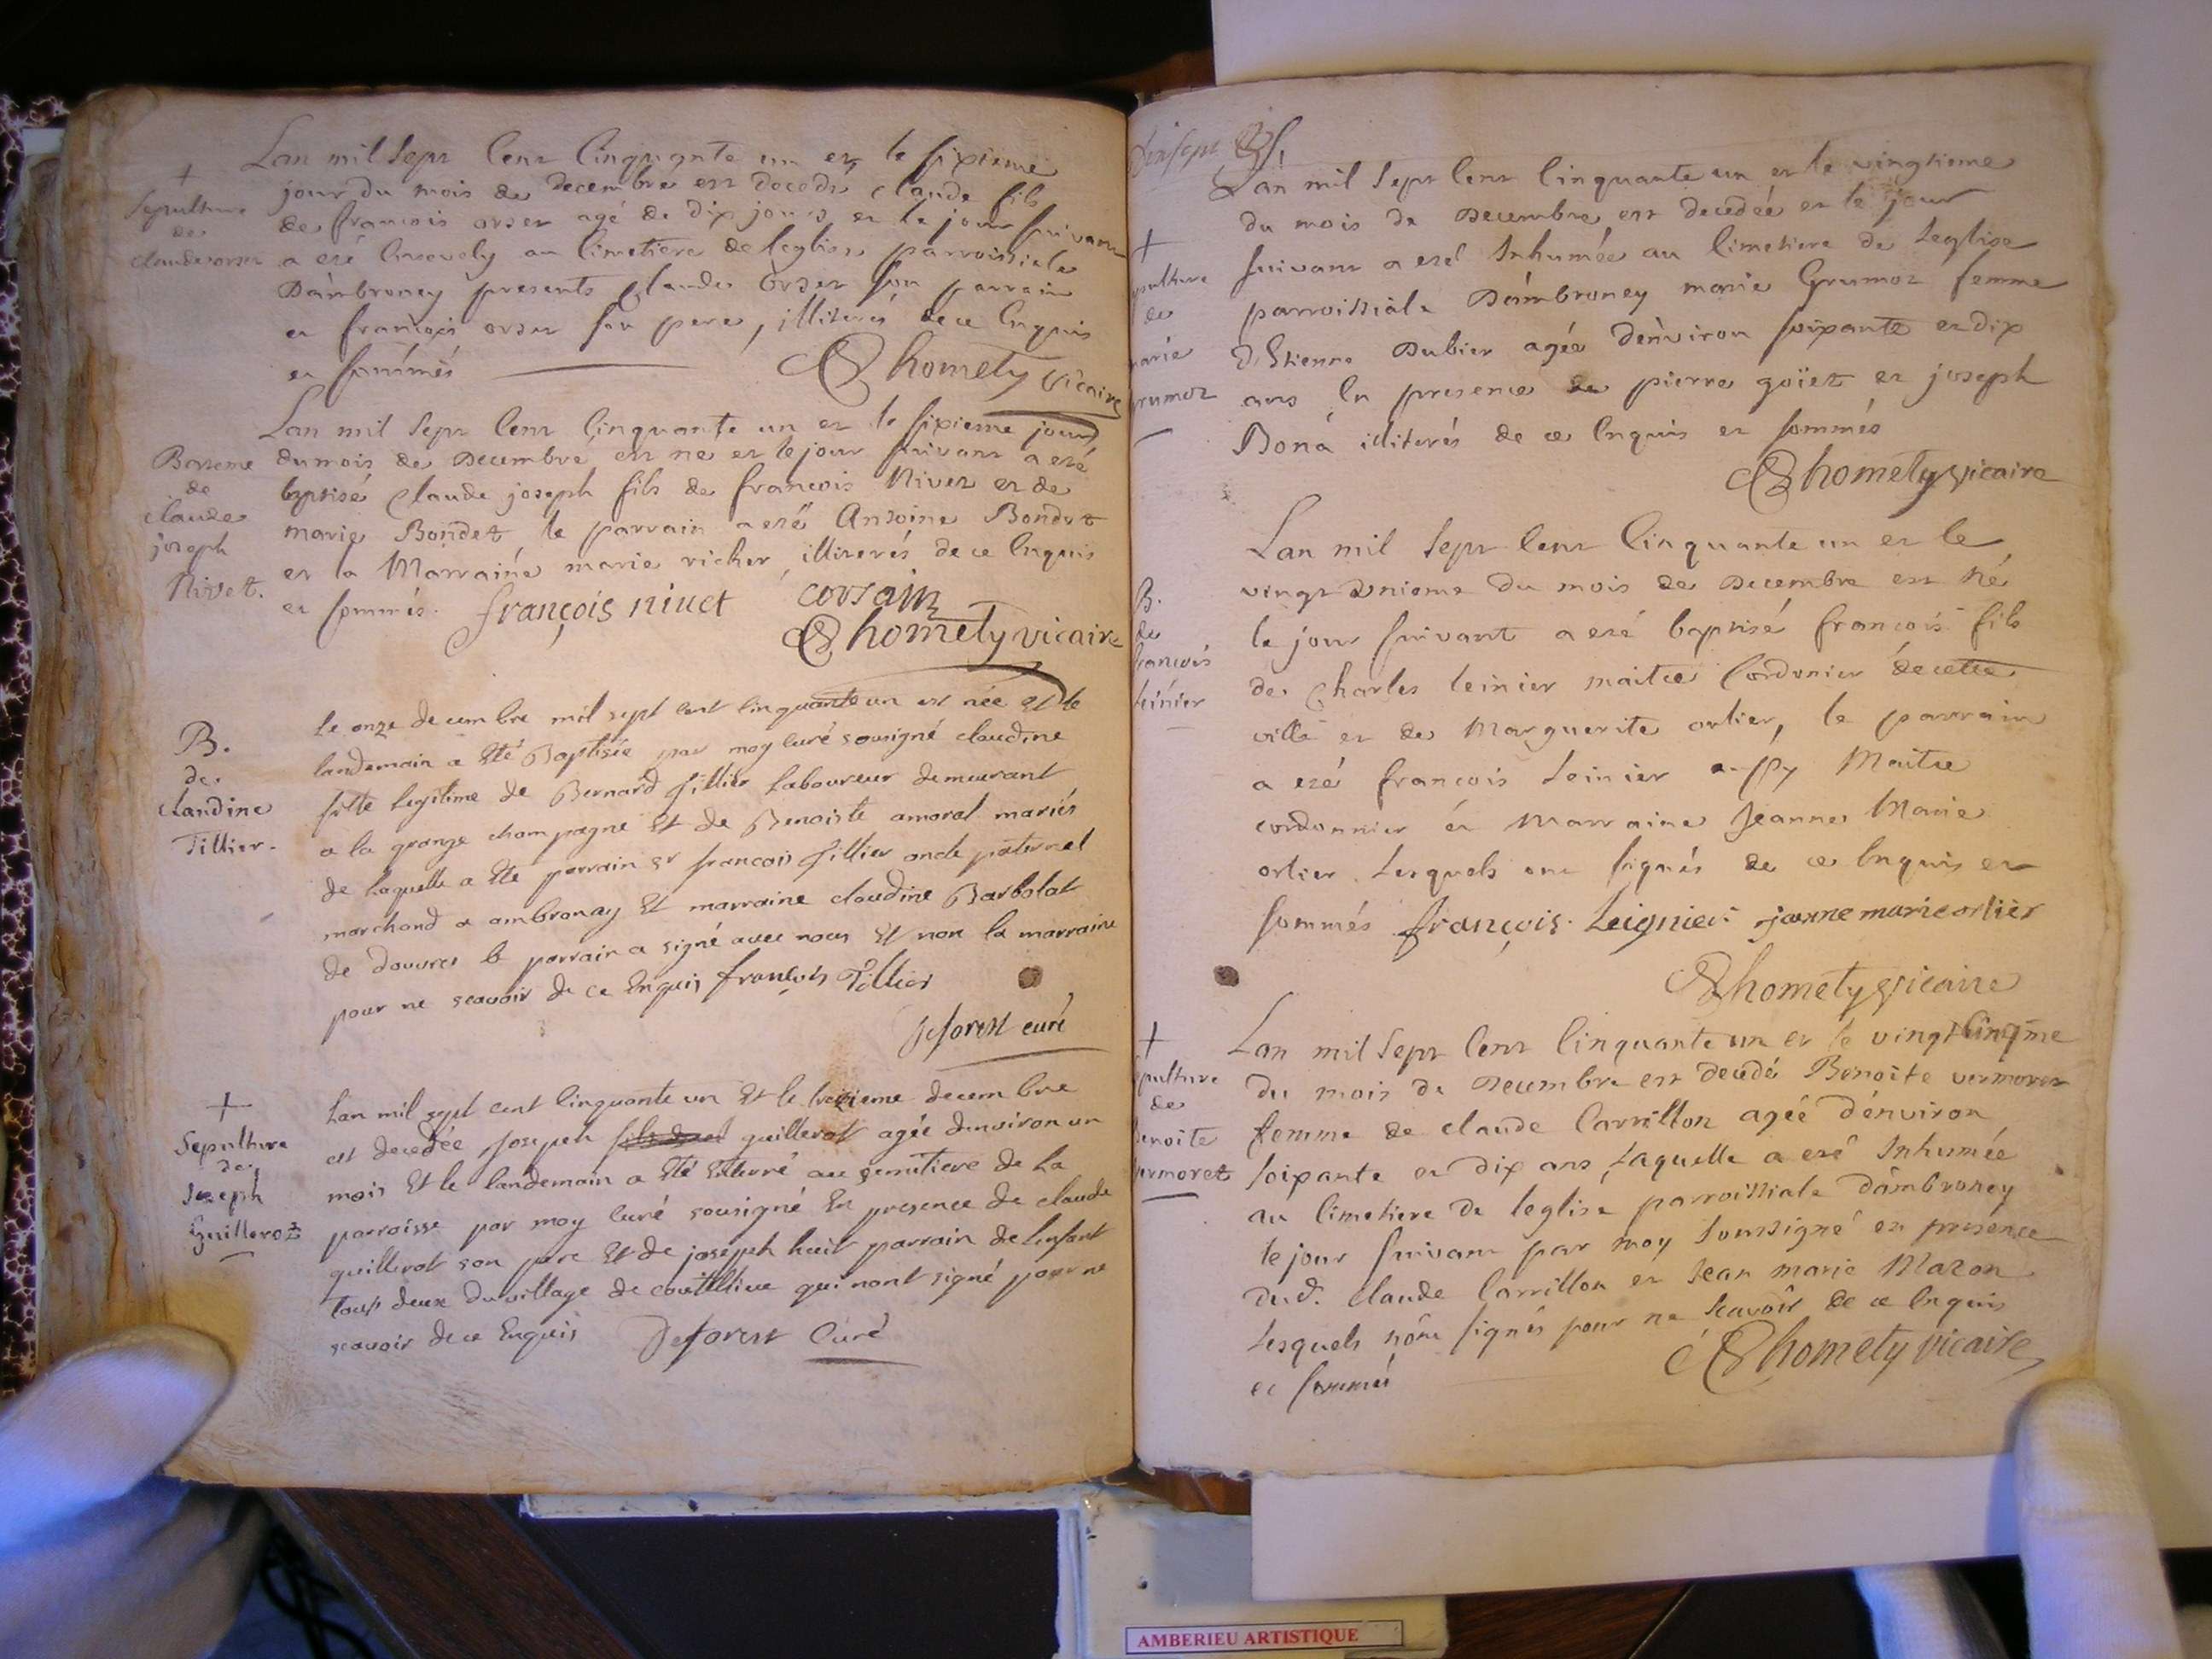 +
Sepulture
de
claude orser
Lan mil sept cent cinquante un et le sixieme
jour du mois de decembre est decedé claude fils
de francois orser agé de dix jours et le jour suivant
a eté Ensevely au cimetiere de leglise parroissiale
Dambroney presents claude orser son parrain
et francois orser son pere, illiterés de ce Enquis
et sommés
Chomety vicaire
Bateme
de
claude
joseph
Nivet.
Lan mil sept cent cinquante un et le sixieme jour
du mois de Decembre est ne et le jour suivant a eté
baptisé claude joseph fils de francois Nivet et de
marie Bondet le parrain a eté Antoine Bondet
et la Marraine marie richer, illiterés de ce Enquis
et sommés. françois niuet corsain
Chomety vicaire
B.
de
claudine
Tillier.
le onze decembre mil sept cent cinquante un est née et le
landemain a Eté Baptisée par moy curé sousigné claudine
fille legitime de Bernard Tillier laboureur demeurant
a la grange champagne Et de Benoiste amoral mariés
de laquelle a Eté parrain sr francois Tillier oncle paternel
marchand a ambronay Et marraine claudine Barbolat
de douvres le parrain a signé avec nous Et non la marraine
pour ne scavoir de ce Enquis françois Tillier
Deforest curé
+
Sepulture
de
Joseph
Guillerot
Lan mil sept cent cinquante un Et le treizieme decembre
est decedée Joseph guillerot agée denviron un
mois Et le landemain a Eté Enterré au semetiere de la
parroisse par moy curé sousigné En presence de claude
guillerot son pere Et de joseph huit parrain de lenfant
tous deux du village de coutelieue qui nont signé pour ne
scavoir de ce Enquis Deforest Curé
+
pulture
de
marie
rumoz
Lan mil sept cent cinquante un et le vingtieme
du mois de Decembre est decedée et le jour
suivant a eté Inhumée au cimetiere de Leglise
parroissiale Dambroney marie Grumoz femme
d'Etienne Dubier agée denviron soixante et dix
ans En presence de pierre goïet et joseph
Bona illiterés de ce Enquis et sommés
Chomety vicaire
B.
de
francois
leinier
Lan mil sept cent cinquante un et le
vingt unieme du mois de Decembre est né
le jour suivant a eté baptisé francois fils
de Charles leinier maitre Cordonier de cette
ville et de Marguerite orlier, le parrain
a eté francois Leinier aussy Maitre
cordonnier et Marraine Jeanne Marie
orlier Lesquels ont signés de ce Enquis et
sommés françois Leignier jeanne marie orlier
Chomety vicaire
+
epulture
de
benoite
vermoret
Lan mil sept cent cinquante un et le vingt cinqme
du mois de Decembre est decedé Benoite vermoret
femme de claude Carrillon agée d'environ
soixante et dix ans Laquelle a eté Inhumée
au cimetiere de leglise parroissiale dambroney
le jour suivant par moy soussigné en presence
dud. claude Carrillon et Jean marie Mazon
Lesquels n'ont signés pour ne scavoir de ce Enquis
et sommés
Chomety vicaire
AMBERIEU ARTISTIQUE